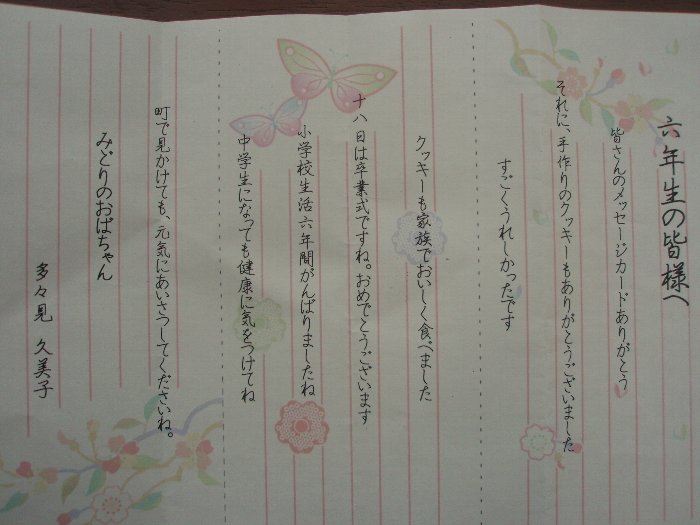 六年生の皆様へ
皆さんのメッセージカードありがとう
それに、手作りのクッキーもありがとうございました
すごくうれしかったです
クッキーも家族でおいしく食べました
十八日は卒業式ですね。おめでとうございます
小学校生活六年間がんばりましたね
中学生になっても健康に気をつけてね
町で見かけても、元気にあいさつしてくださいね。
みどりのおばちゃん
多々見 久美子